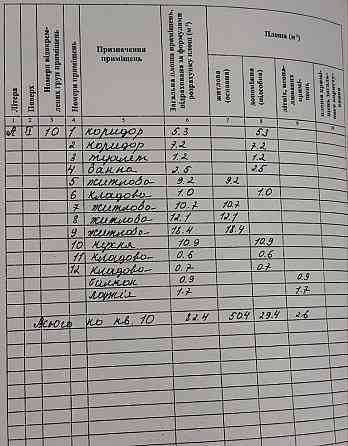 Літера
Поверх
Номери відокремлених груп приміщень
Номери приміщень
Призначення приміщень
Загальна площа приміщень, відрахована за формулами розрахунку площ (м²)
Площа (м²)
житлова (основна)
допоміжна (підсобна)
1 2 3 4 5 6 7 8 9 10
А II 10 1 коридор 5.3 5.3
2 коридор 7.2 7.2
3 туалет 1.2 1.2
4 ванна 2.5 2.5
5 житлова 9.2 9.2
6 кладова 1.0 1.0
7 житлова 10.7 10.7
8 житлова 12.1 12.1
9 житлова 18.4 18.4
10 кухня 10.9 10.9
11 кладова 0.6 0.6
12 кладова 0.7 0.7
балкон 0.9 0.9
лоджія 1.7 1.7
Всього по кв. 10 82.4 50.4 29.4 2.6